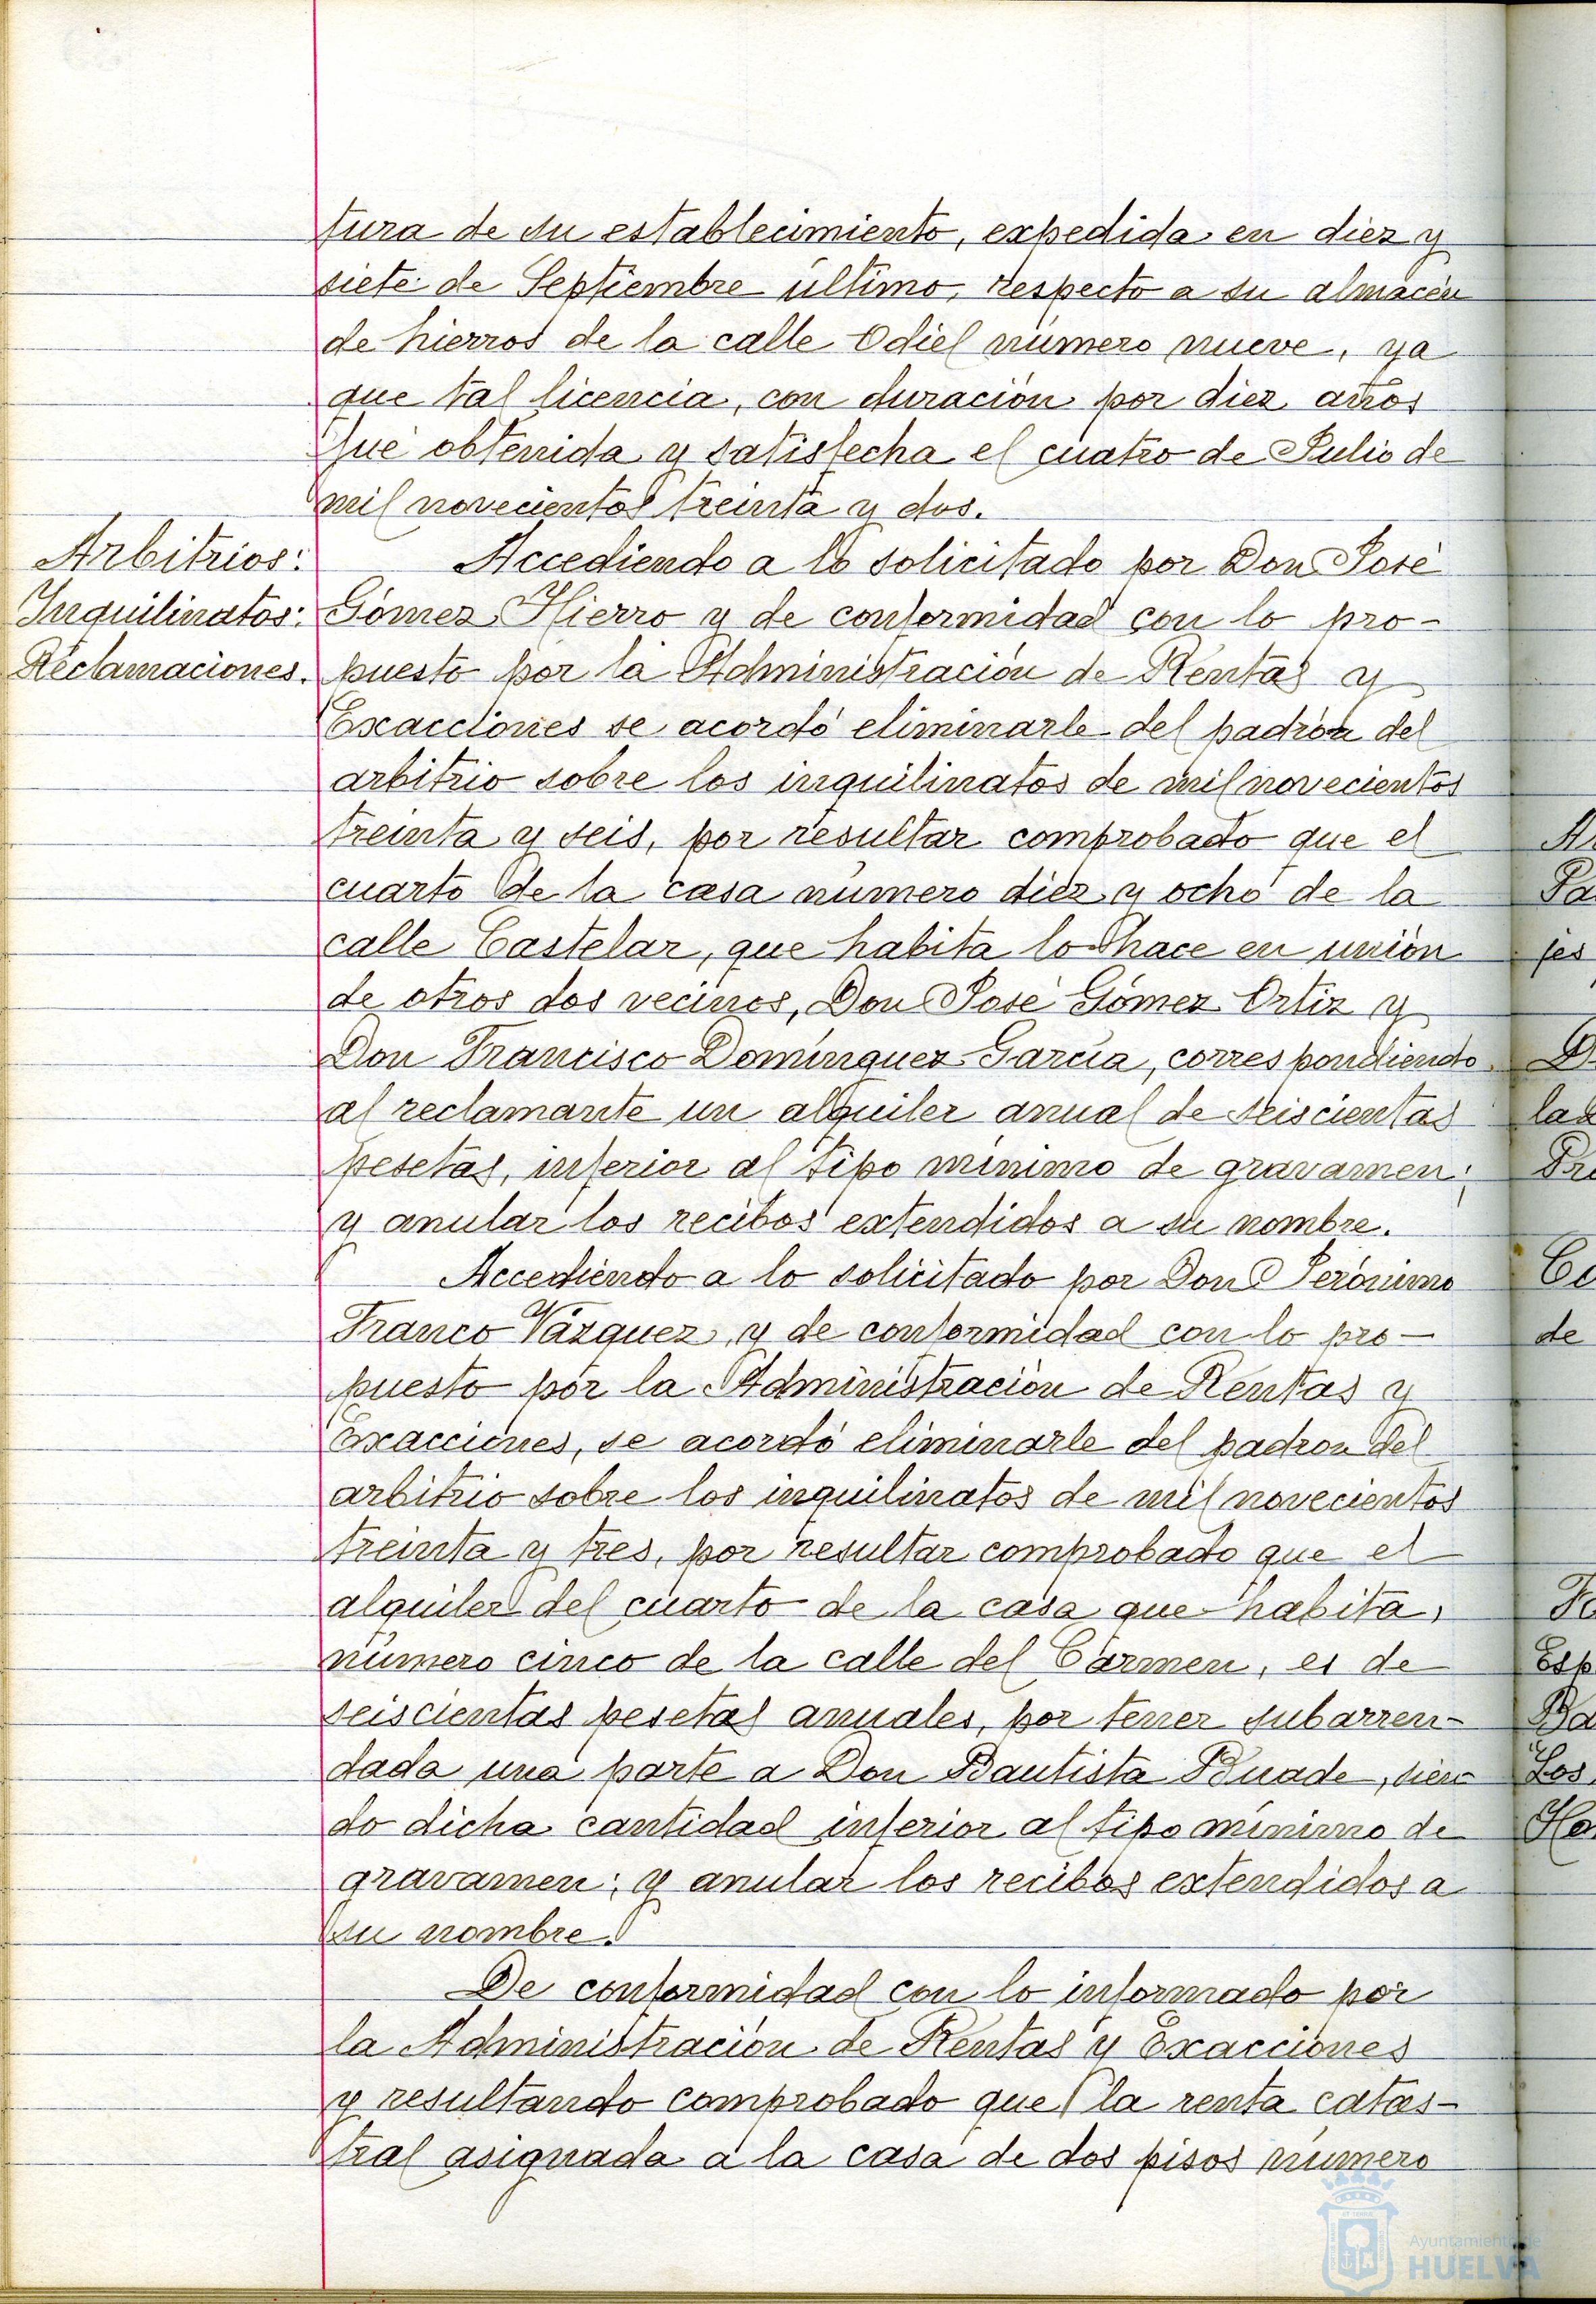 tura de su establecimiento, expedida en diez y
siete de Septiembre último, respecto a su almacén
de hierros de la calle Odiel número nueve, ya
que tal licencia, con duración por diez años
fué obtenida y satisfecha el cuatro de Julio de
mil novecientos treinta y dos.
Arbitrios:
Inquilinatos:
Reclamaciones.
Accediendo a lo solicitado por Don José
Gómez Hierro y de conformidad con lo pro-
puesto por la Administración de Rentas y
Exacciones se acordó eliminarle del padrón del
arbitrio sobre los inquilinatos de mil novecientos
treinta y seis, por resultar comprobado que el
cuarto de la casa número diez y ocho de la
calle Castelar, que habita lo hace en unión
de otros dos vecinos, Don José Gómez Ortiz y
Don Francisco Domínguez García, correspondiendo
al reclamante un alquiler anual de seiscientas
pesetas, inferior al tipo mínimo de gravamen;
y anular los recibos extendidos a su nombre.
Accediendo a lo solicitado por Don Jerónimo
Franco Vázquez, y de conformidad con lo pro-
puesto por la Administración de Rentas y
Exacciones, se acordó eliminarle del padron del
arbitrio sobre los inquilinatos de mil novecientos
treinta y tres, por resultar comprobado que el
alquiler del cuarto de la casa que habita,
número cinco de la calle del Carmen, es de
seiscientas pesetas anuales, por tener subarren-
dada una parte a Don Bautista Buade, sien-
do dicha cantidad inferior al tipo mínimo de
gravamen; y anular los recibos extendidos a
su nombre.
De conformidad con lo informado por
la Administración de Rentas y Exacciones
y resultando comprobado que la renta catas-
tral asignada a la casa de dos pisos número
Pa
jes
las
de
Esp
Los
Ayuntamiento de
HUELVA